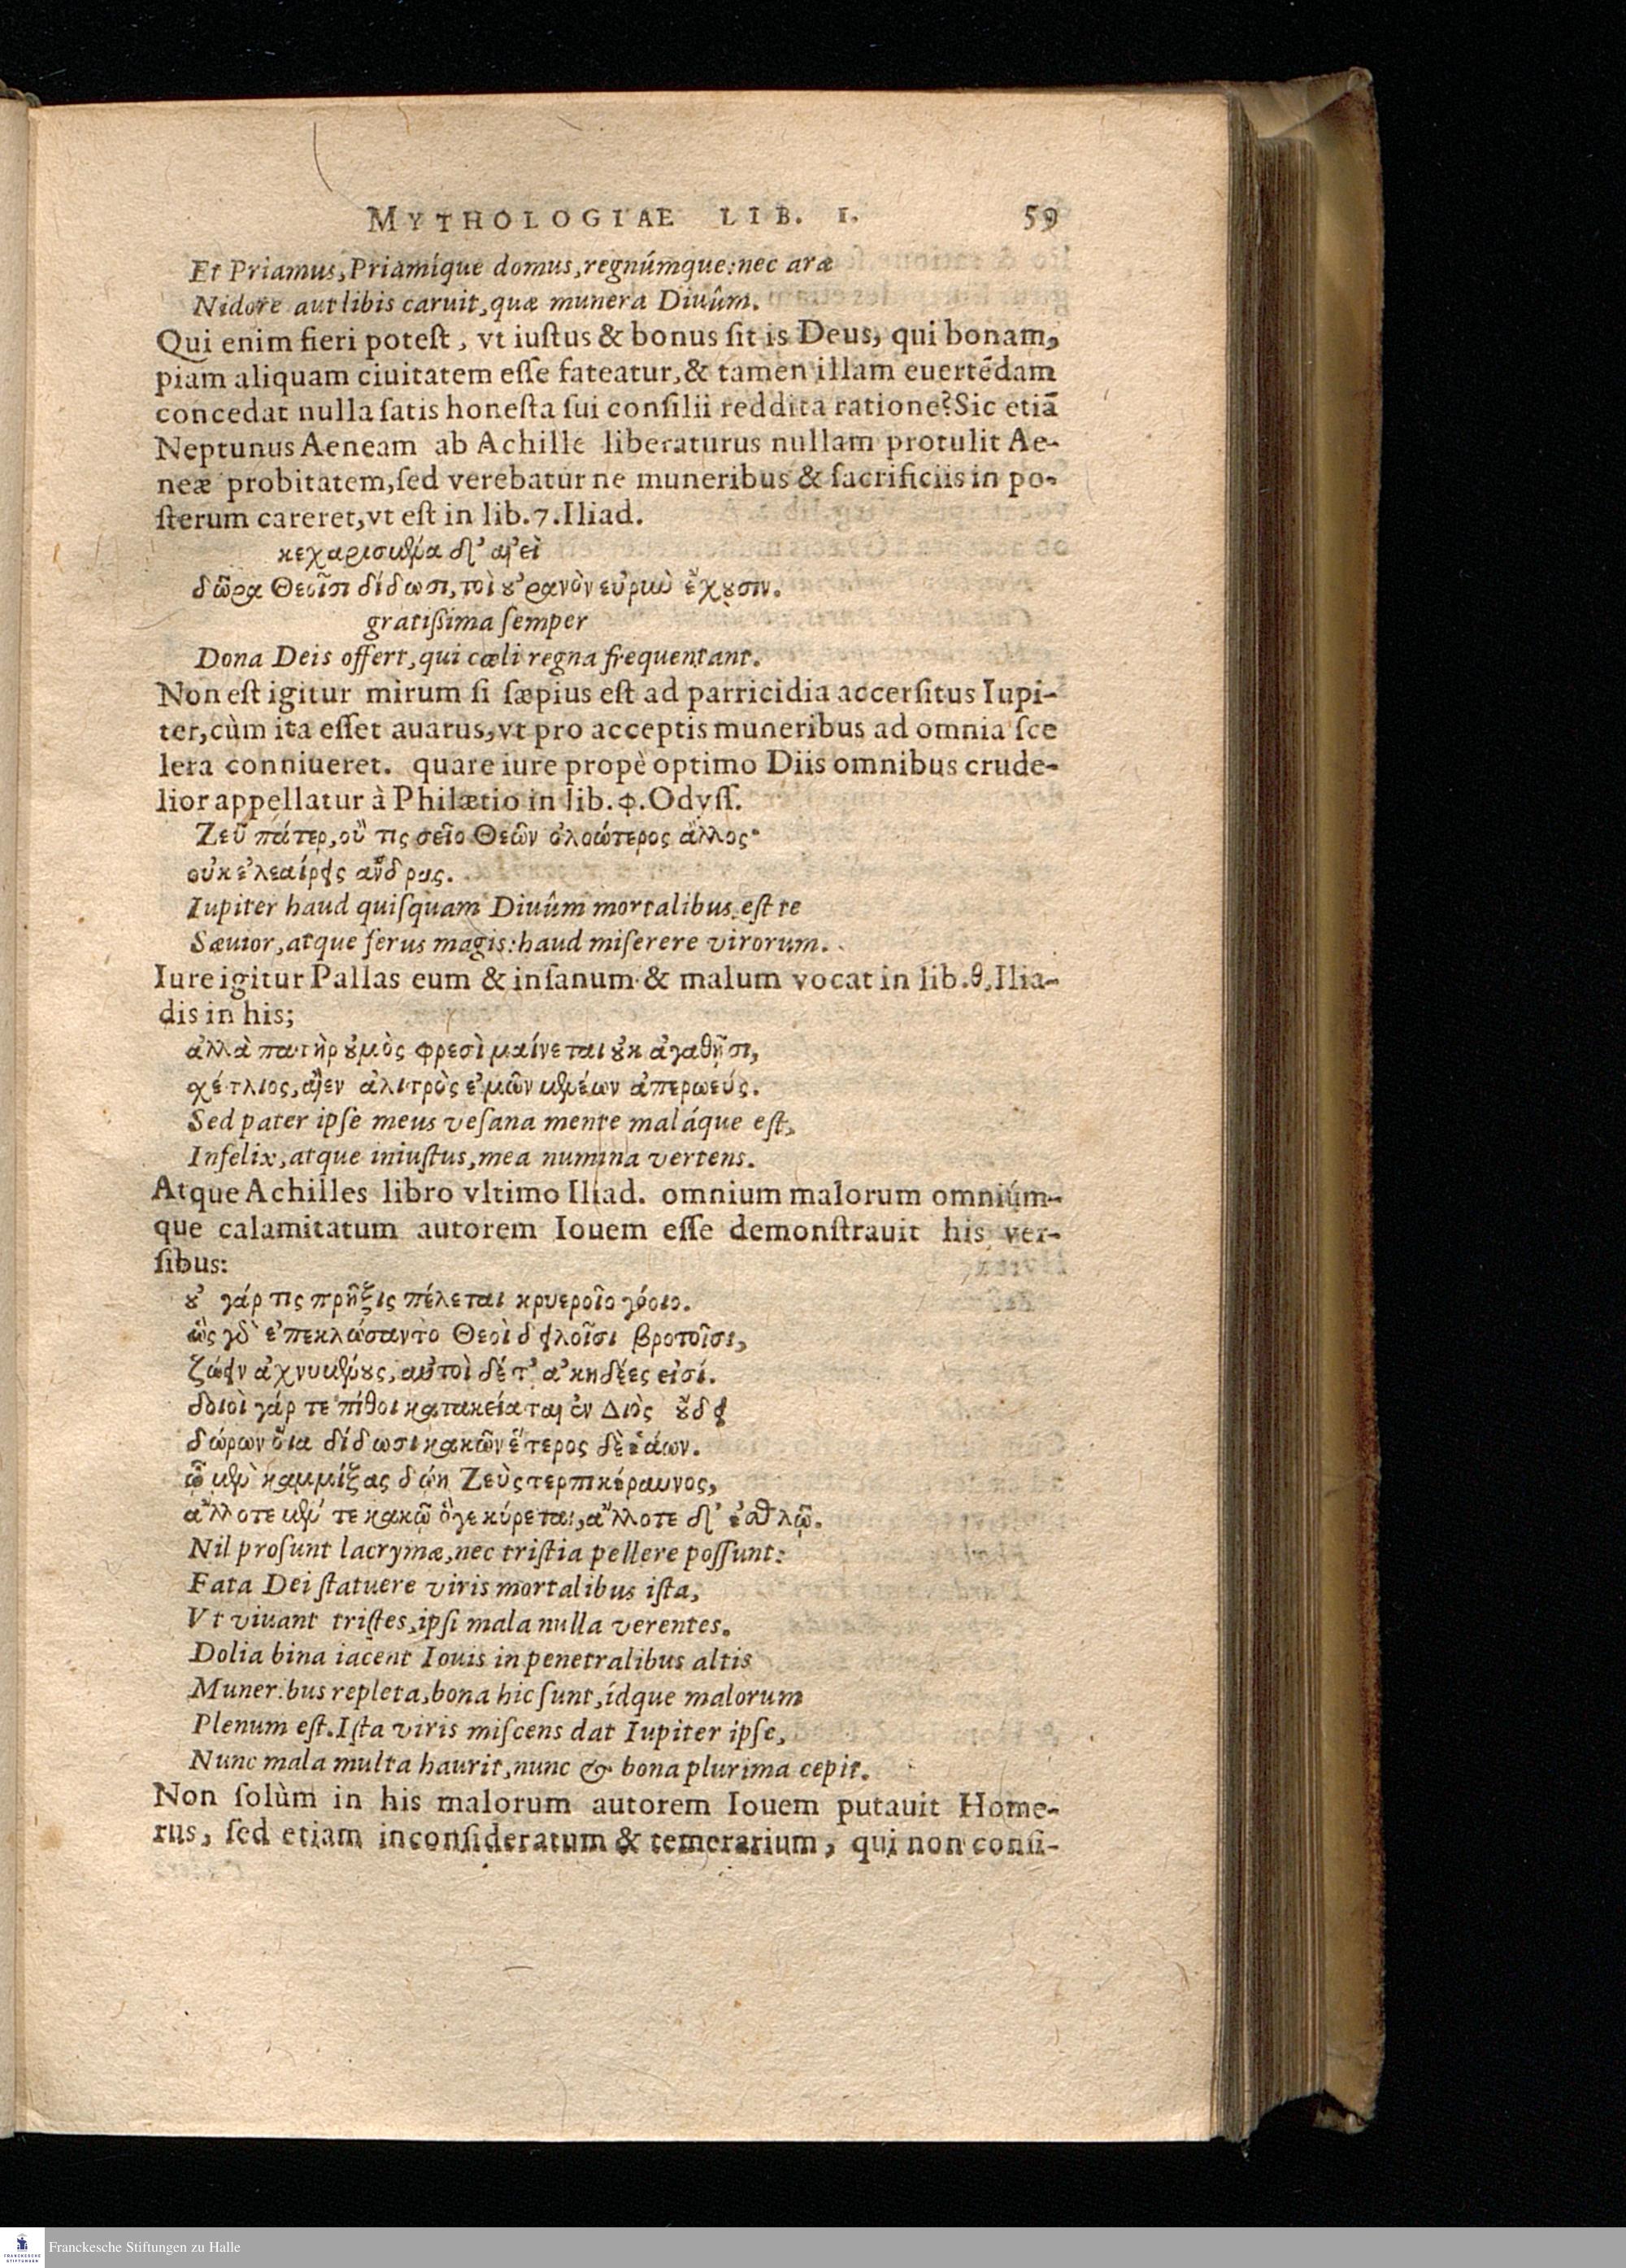 MYTHOLOGIAE LIB. I. 59
Et Priamus, Priamíque domus, regnúmque: nec aræ
Nidore aut libis caruit, quæ munera Diuûm.
Qui enim fieri potest, vt iustus & bonus sit is Deus, qui bonam,
piam aliquam ciuitatem esse fateatur, & tamen illam euertēdam
concedat nulla satis honesta sui consilii reddita ratione? Sic etiā
Neptunus Aeneam ab Achille liberaturus nullam protulit Ae-
neæ probitatem, sed verebatur ne muneribus & sacrificiis in po-
sterum careret, vt est in lib. 7. Iliad.
κεχαρισμένα δ' αἰεὶ
δῶρα Θεοῖσι δίδωσι, τοὶ οὐρανὸν εὐρὺν ἔχουσιν.
gratissima semper
Dona Deis offert, qui cœli regna frequentant.
Non est igitur mirum si sæpius est ad parricidia accersitus Iupi-
ter, cùm ita esset auarus, vt pro acceptis muneribus ad omnia sce
lera conniueret. quare iure propè optimo Diis omnibus crude-
lior appellatur à Philætio in lib. φ. Odyss.
Ζεῦ πάτερ, οὔ τις σεῖο Θεῶν ὀλοώτερος ἄλλος·
οὐκ ἐλεαίρεις ἄνδρας.
Iupiter haud quisquam Diuûm mortalibus est te
Sæuior, atque ferus magis: haud miserere virorum.
Iure igitur Pallas eum & insanum & malum vocat in lib. θ. Ilia-
dis in his;
ἀλλὰ πατὴρ οὑμὸς φρεσὶ μαίνεται οὐκ ἀγαθῇσι,
σχέτλιος, αἰὲν ἀλιτρὸς ἐμῶν μενέων ἀπερωεύς.
Sed pater ipse meus vesana mente maláque est,
Infelix, atque iniustus, mea numina vertens.
Atque Achilles libro vltimo Iliad. omnium malorum omniúm-
que calamitatum autorem Iouem esse demonstrauit his ver-
sibus:
οὐ γάρ τις πρῆξις πέλεται κρυεροῖο γόοιο.
ὣς γὰρ ἐπεκλώσαντο Θεοὶ δειλοῖσι βροτοῖσι,
ζώειν ἀχνυμένους, αὐτοὶ δέ τ' ἀκηδέες εἰσί.
δοιοὶ γάρ τε πίθοι κατακείαται ἐν Διὸς οὔδει
δώρων οἷα δίδωσι κακῶν ἕτερος δὲ ἐάων.
ᾧ μὲν καμμίξας δώῃ Ζεὺς τερπικέραυνος,
ἄλλοτε μέν τε κακῷ ὅγε κύρεται, ἄλλοτε δ' ἐσθλῷ.
Nil prosunt lacrymæ, nec tristia pellere possunt:
Fata Dei statuere viris mortalibus ista,
Vt viuant tristes, ipsi mala nulla verentes.
Dolia bina iacent Iouis in penetralibus altis
Muneribus repleta, bona hic sunt, ídque malorum
Plenum est. Ista viris miscens dat Iupiter ipse,
Nunc mala multa haurit, nunc & bona plurima cepit.
Non solùm in his malorum autorem Iouem putauit Home-
rus, sed etiam inconsideratum & temerarium, qui non consi-
Franckesche Stiftungen zu Halle